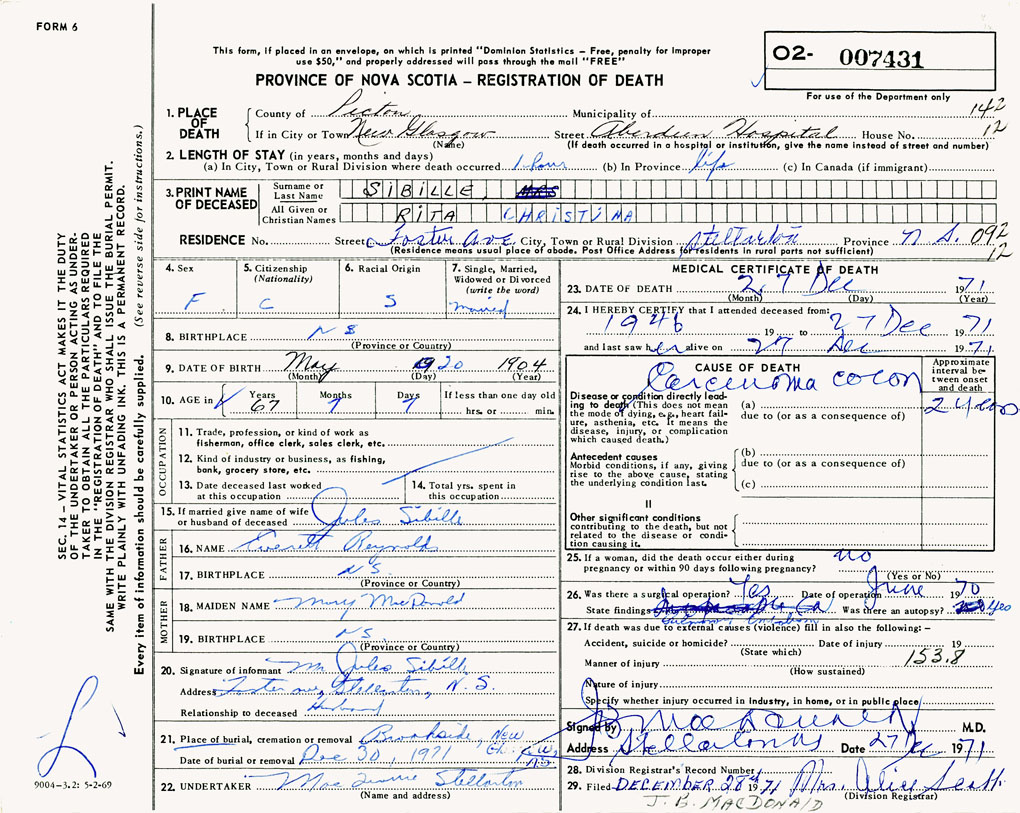 FORM 6
This form, if placed in an envelope, on which is printed "Dominion Statistics – Free, penalty for improper
use $50," and properly addressed will pass through the mail "FREE"
PROVINCE OF NOVA SCOTIA – REGISTRATION OF DEATH
O2- 007431
For use of the Department only
142
12
1. PLACE OF DEATH
County of Pictou Municipality of
If in City or Town New Glasgow Street Aberdeen Hospital House No.
(Name) (If death occurred in a hospital or institution, give the name instead of street and number)
2. LENGTH OF STAY (in years, months and days)
(a) In City, Town or Rural Division where death occurred 1 hour (b) In Province life (c) In Canada (if immigrant)
3. PRINT NAME OF DECEASED
Surname or Last Name SIBILLE, MRS
All Given or Christian Names RITA CHRISTINA
RESIDENCE No. Street Foster Ave City, Town or Rural Division Stellarton Province N S. 092
12
(Residence means usual place of abode. Post Office Address for residents in rural parts not sufficient)
4. Sex
F
5. Citizenship
(Nationality)
C
6. Racial Origin
S
7. Single, Married,
Widowed or Divorced
(write the word)
married
8. BIRTHPLACE N S
(Province or Country)
9. DATE OF BIRTH May 20 1904
(Month) (Day) (Year)
10. AGE in Years 67 Months 7 Days 7 If less than one day old
hrs. or min.
OCCUPATION
11. Trade, profession, or kind of work as
fisherman, office clerk, sales clerk, etc.
12. Kind of industry or business, as fishing,
bank, grocery store, etc.
13. Date deceased last worked
at this occupation
14. Total yrs. spent in
this occupation
15. If married give name of wife
or husband of deceased Jules Sibille
FATHER
16. NAME Everett Reynolds
17. BIRTHPLACE N S.
(Province or Country)
MOTHER
18. MAIDEN NAME Mary MacDonald
19. BIRTHPLACE N S.
(Province or Country)
20. Signature of informant Mr Jules Sibille
Address Foster ave, Stellarton, N. S.
Relationship to deceased Husband
21. Place of burial, cremation or removal Brookside, New
Date of burial or removal Dec 30, 1971
22. UNDERTAKER Stellarton
(Name and address)
MEDICAL CERTIFICATE OF DEATH
23. DATE OF DEATH 27 Dec 1971
(Month) (Day) (Year)
24. I HEREBY CERTIFY that I attended deceased from:
1946 19 to 27 Dec 1971
and last saw her alive on 27 Dec 1971
CAUSE OF DEATH
Approximate
interval be-
tween onset
and death
Carcenoma colon
Disease or condition directly lead-
ing to death (This does not mean
the mode of dying, e.g., heart fail-
ure, asthenia, etc. It means the
disease, injury, or complication
which caused death.)
(a) 2 years
due to (or as a consequence of)
Antecedent causes
Morbid conditions, if any, giving
rise to the above cause, stating
the underlying condition last.
(b)
due to (or as a consequence of)
(c)
II
Other significant conditions
contributing to the death, but not
related to the disease or condi-
tion causing it.
25. If a woman, did the death occur either during
pregnancy or within 90 days following pregnancy? no
(Yes or No)
26. Was there a surgical operation? Yes Date of operation June 1970
State findings Was there an autopsy? Yes
27. If death was due to external causes (violence) fill in also the following: –
Accident, suicide or homicide? Date of injury 19
(State which)
153.8
Manner of injury
(How sustained)
Nature of injury
Specify whether injury occurred in industry, in home, or in public place
Signed by M.D.
Address Stellarton NS Date 27 Dec 1971
28. Division Registrar's Record Number
29. Filed DECEMBER 28th 1971 Mrs. Alice Scott
(Division Registrar)
J. B. MACDONALD
SEC. 14 – VITAL STATISTICS ACT MAKES IT THE DUTY
OF THE UNDERTAKER OR PERSON ACTING AS UNDER-
TAKER TO OBTAIN ALL THE PARTICULARS REQUIRED
IN THE "REGISTRATION OF DEATH" AND TO FILE THE
SAME WITH THE DIVISION REGISTRAR WHO SHALL ISSUE THE BURIAL PERMIT.
WRITE PLAINLY WITH UNFADING INK. THIS IS A PERMANENT RECORD.
Every item of information should be carefully supplied. (See reverse side for instructions.)
9004-3.2: 5-2-69